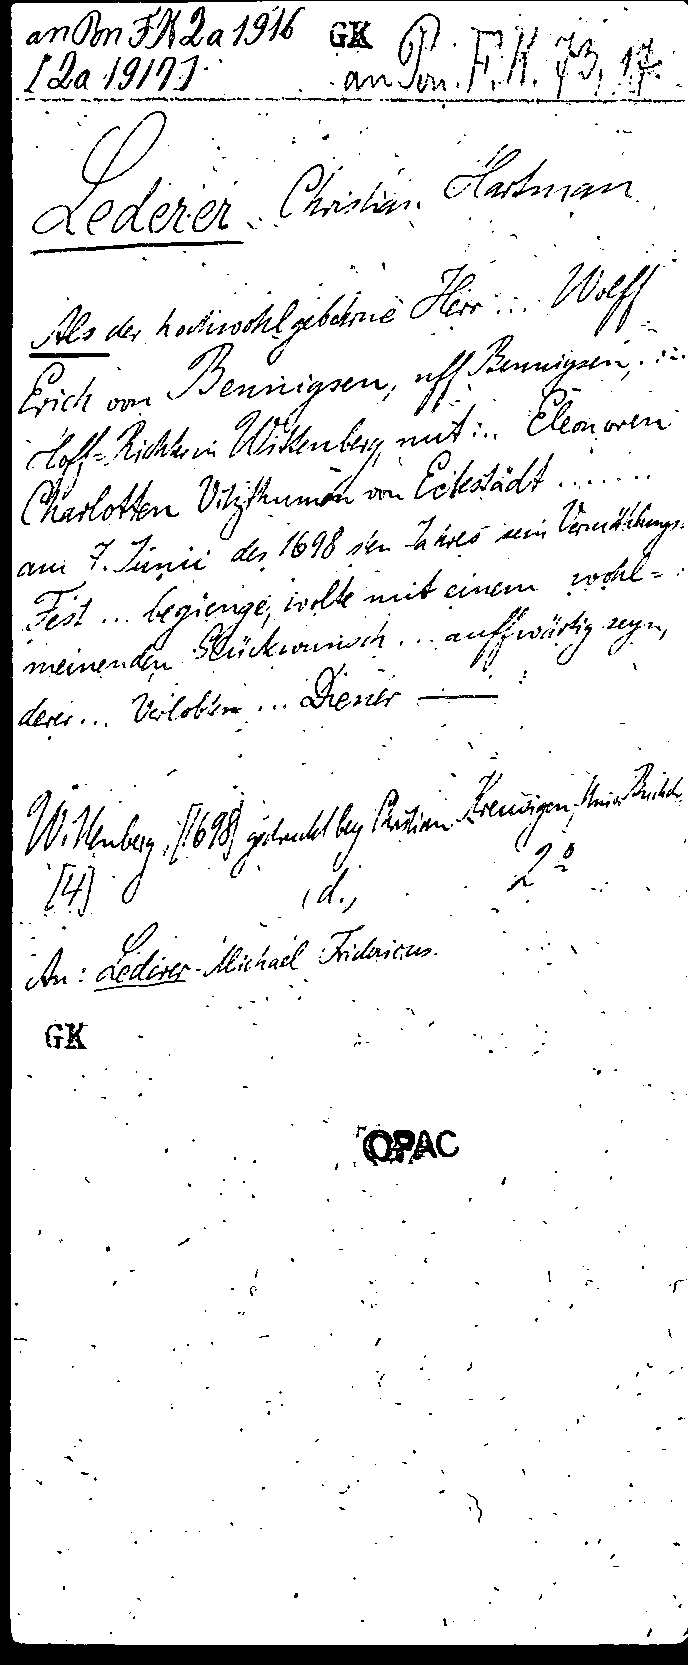 an Pon FK 2a 1916 GK an Pon. F. K. 73, 17.
[2a 1917]
Lederer, Christian Hartman
Als der hochwohlgebohrne Herr ... Wolff
Erich von Bennigsen, uff Bennigsen, ...
Hoff=Richter in Wittenberg, mit ... Eleonoren
Charlotten Vitzthumin von Eckstädt .......
am 7. Junii des 1698 sten Jahres sein Vermählungs=
Fest ... begienge, wolte mit einem wohl=
meinenden Glückwunsch ... auffwärtig seyn,
derer ... Verlobten ... Diener —
Wittenberg, [1698] gedruckt bey Christian Kreusigen, Univ. Buchdr.
[4] , d., 2°
An: Lederer, Michael Fridericus.
GK
OPAC